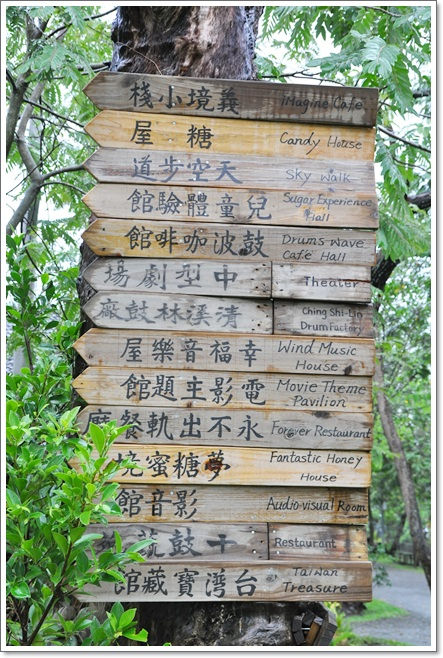 義境小棧
iMagine Cafe
糖屋
Candy House
天空步道
Sky Walk
兒童體驗館
Sugar Experience
Hall
鼓波咖啡館
Drums Wave
Café Hall
中型劇場
Theater
清溪林鼓廠
Ching Shi-Lin
Drum Factory
幸福音樂屋
Wind Music
House
電影主題館
Movie Theme
Pavilion
永不出軌餐廳
Forever Restaurant
夢糖蜜境
Fantastic Honey
House
影音館
Audio-visual Room
十鼓蔬
Restaurant
台灣寶藏館
Taiwan
Treasure